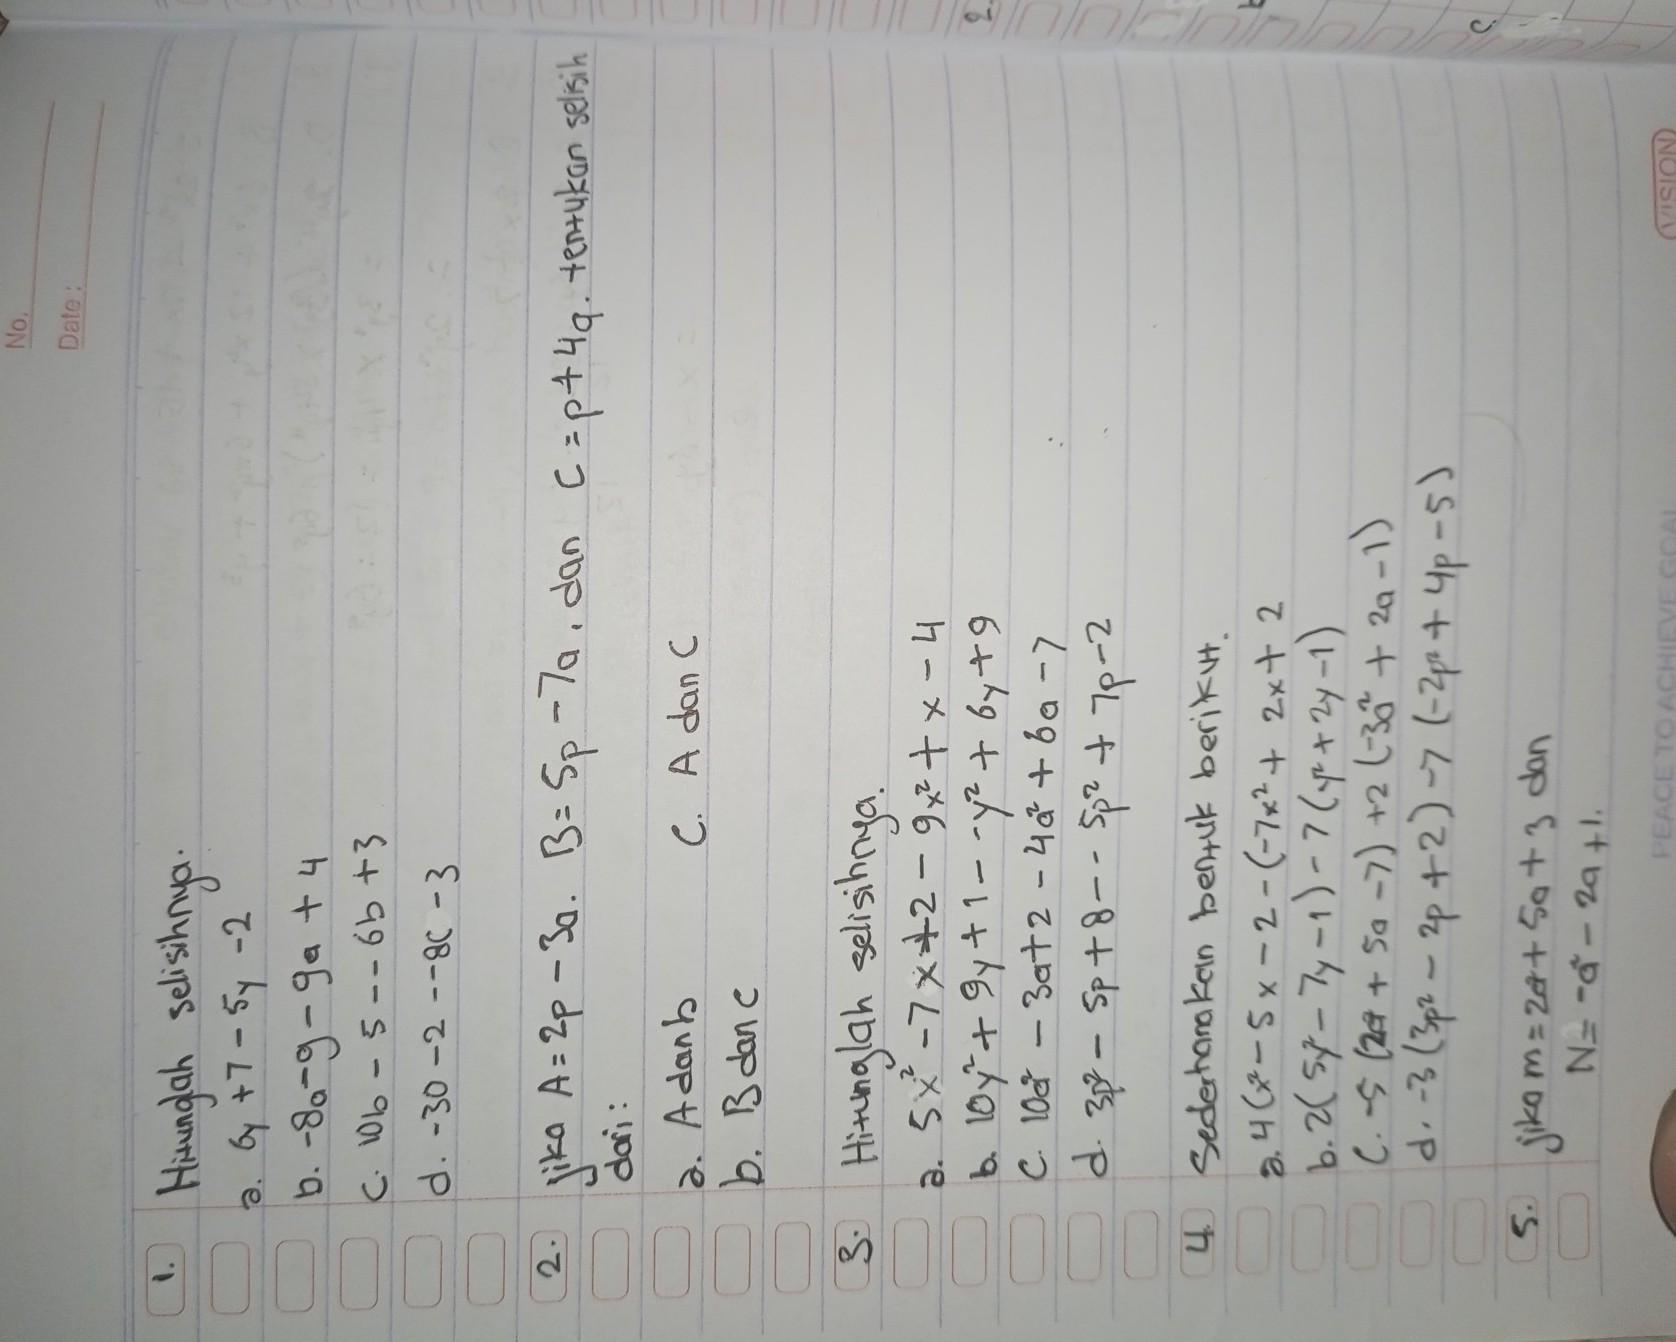 No.
Date :
1. Hitunglah selisihnya.
a. 6y + 7 - 5y - 2
b. -8a - 9 - 9a + 4
c. 10b - 5 - - 6b + 3
d. -30 - 2 - -8c - 3
2. jika A = 2p - 3a. B = 5p - 7a, dan C = p + 4q. tentukan selisih
dari:
a. A dan b C. A dan C
b. B dan c
3. Hitunglah selisihnya.
a. 5x² - 7x + 2 - 9x² + x - 4
b. 10y² + 9y + 1 - -y² + 6y + 9
c. 10a² - 3a + 2 - 4a² + 6a - 7
d. 3p² - 5p + 8 - - 5p² + 7p - 2
4 Sederhanakan bentuk berikut.
a. 4(x² - 5x - 2 - (-7x² + 2x + 2
b. 2(5y² - 7y - 1) - 7(y² + 2y - 1)
C. -5 (2a² + 5a - 7) + 2 (-3a² + 2a - 1)
d. -3 (3p² - 2p + 2) - 7 (-2p² + 4p - 5)
5. jika m = 2a² + 5a + 3 dan
N = -a² - 2a + 1.
VISION
PEACE TO ACHIEVE GOAL
2.
b
c